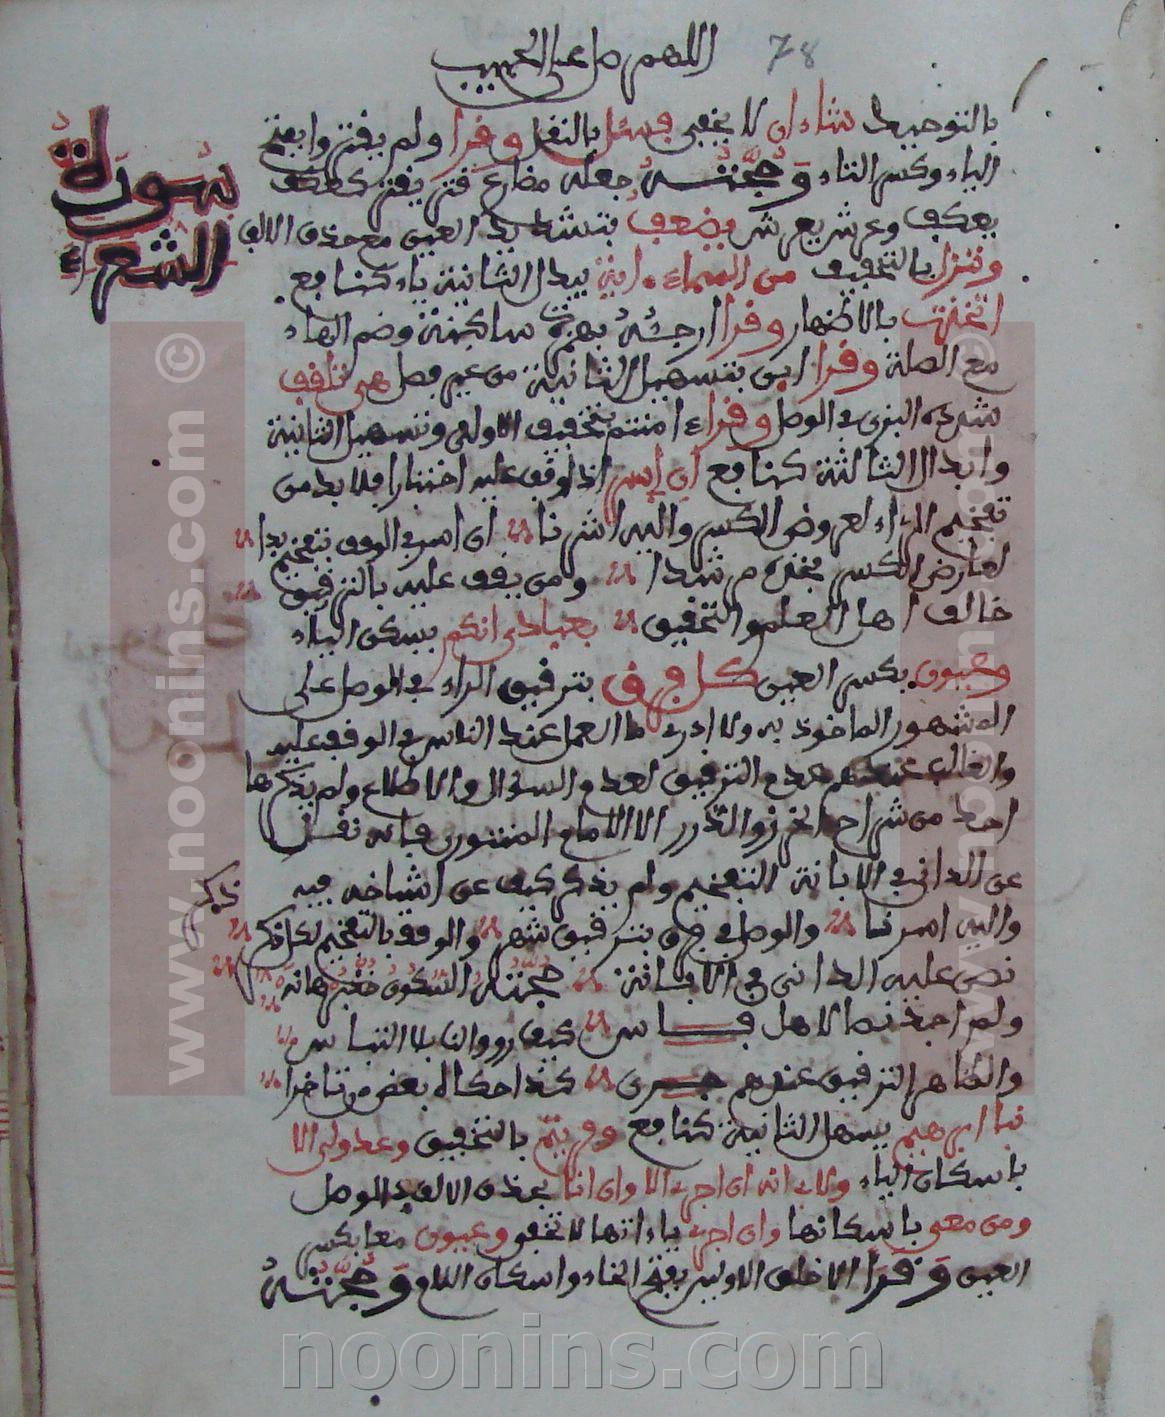 78
اللهم صل على الحبيب
سورة
الشعراء
بالتوحيد شاء ان لا يخفى فسئل بالنقل وقرا ولم يفتروا بفتح
الياء وكسر التاء وحجته جعله مضارع قتر يقتر كعكف
يعكف وعرش يعرش ويضعف بتشديد العين مع حذف الالف
وننزل بالتخفيف من السماء اية يبدل الثانية ياء كنافع
اتخذت بالاظهار وقرا ارجئه بهمزة ساكنة وضم الهاء
مع الصلة وقرا اين بتسهيل الثانية من غير فصل هي تلقف
شدده البزى في الوصل وقراء امنتم بتخفيف الاولى وتسهيل الثانية
وابدال الثالثة كنافع ان اسر اذا وقف عليه اختبارا فلا بد من
تفخيم الراء لعروض الكسر واليه اشرنا ان اسر في الوقف بتفخيم بدا
لعارض الكسر فخذه مرشدا ومن يقف عليه بالترقيق
خالف اهل العلم والتحقيق بعبادي انكم بسكون الياء
وعيون بكسر العين كل فرق بترقيق الراء في الوصل على
المشهور الماخوذ به ولا ادري ما العمل عند الناس في الوقف عليه
والغالب عندهم عدم الترقيق لعدم السؤال والاطلاع ولم يذكرها
احد من شراح الحرز والدرر الا الامام المنتوري فانه نقل
عن الداني في الابانة التفخيم ولم يذكر كيف عن اشياخه فيه
واليه اشرنا والوصل في فرق بترقيق شهر والوقف بالتفخيم لكل ذكر
نص عليه الداني في الابانة حجته السكون خذها بانه
ولم اجد نصا لاهل فاس كيف رووا لنا بلا التباس
والظاهر الترقيق عندهم جرى كذا حكاه بعض من تاخرا
نبا ابرهيم يسهل الثانية كنافع وقريتم بالتحقيق وعدولي الا
باسكان الياء ولابي انه ان اجري الا وان انا بحذف الالف في الوصل
ومن معي باسكانها وان اجري ياءاتها لا تخفى وعيون معا بكسر
العين وقرا الا خلق الاولين بفتح الخاء واسكان اللام وحجته
www.noonins.com ©
www.noonins.com ©
noonins.com